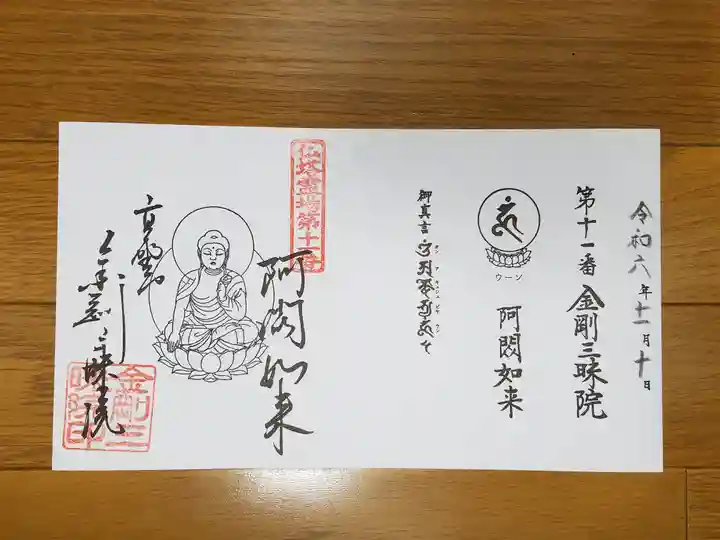 令和六年十一月十日
第十一番 金剛三昧院
ウーン
阿閦如来
御真言
仏塔霊場第十一番
阿閦如来
高野山
金剛三昧院
金剛三昧院